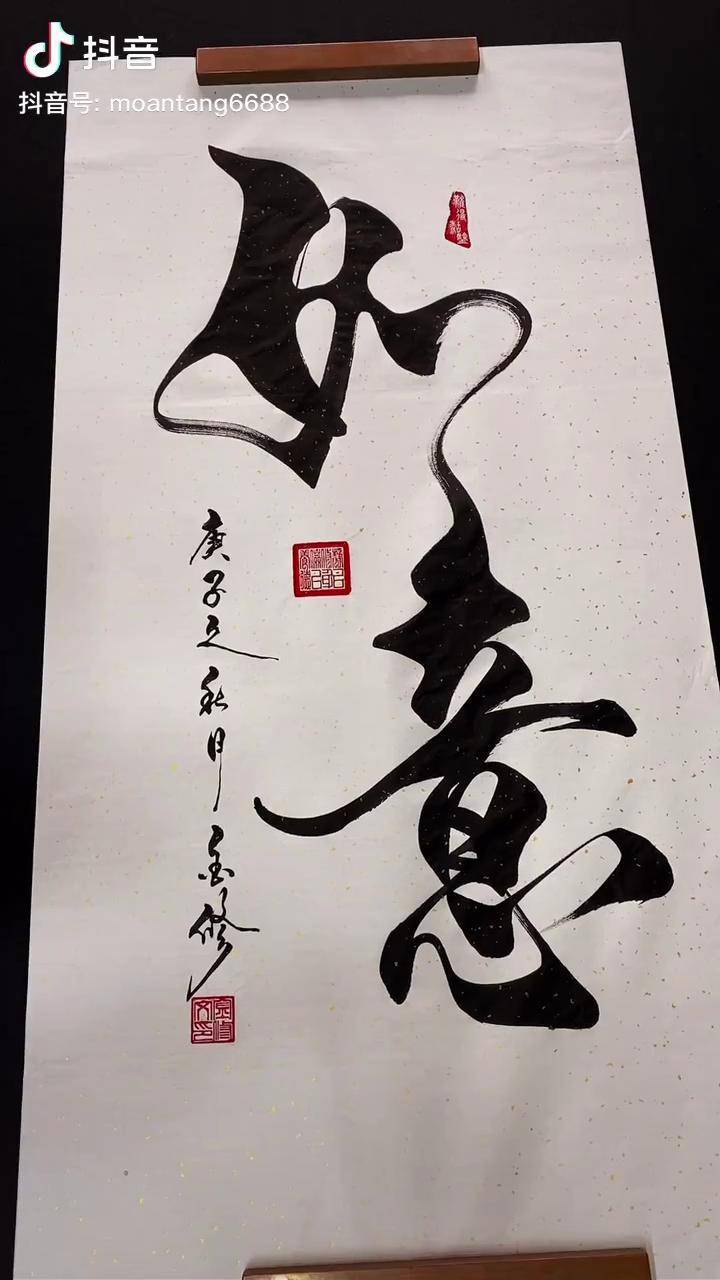 抖音
抖音号: moantang6688
如意
庚子之秋月